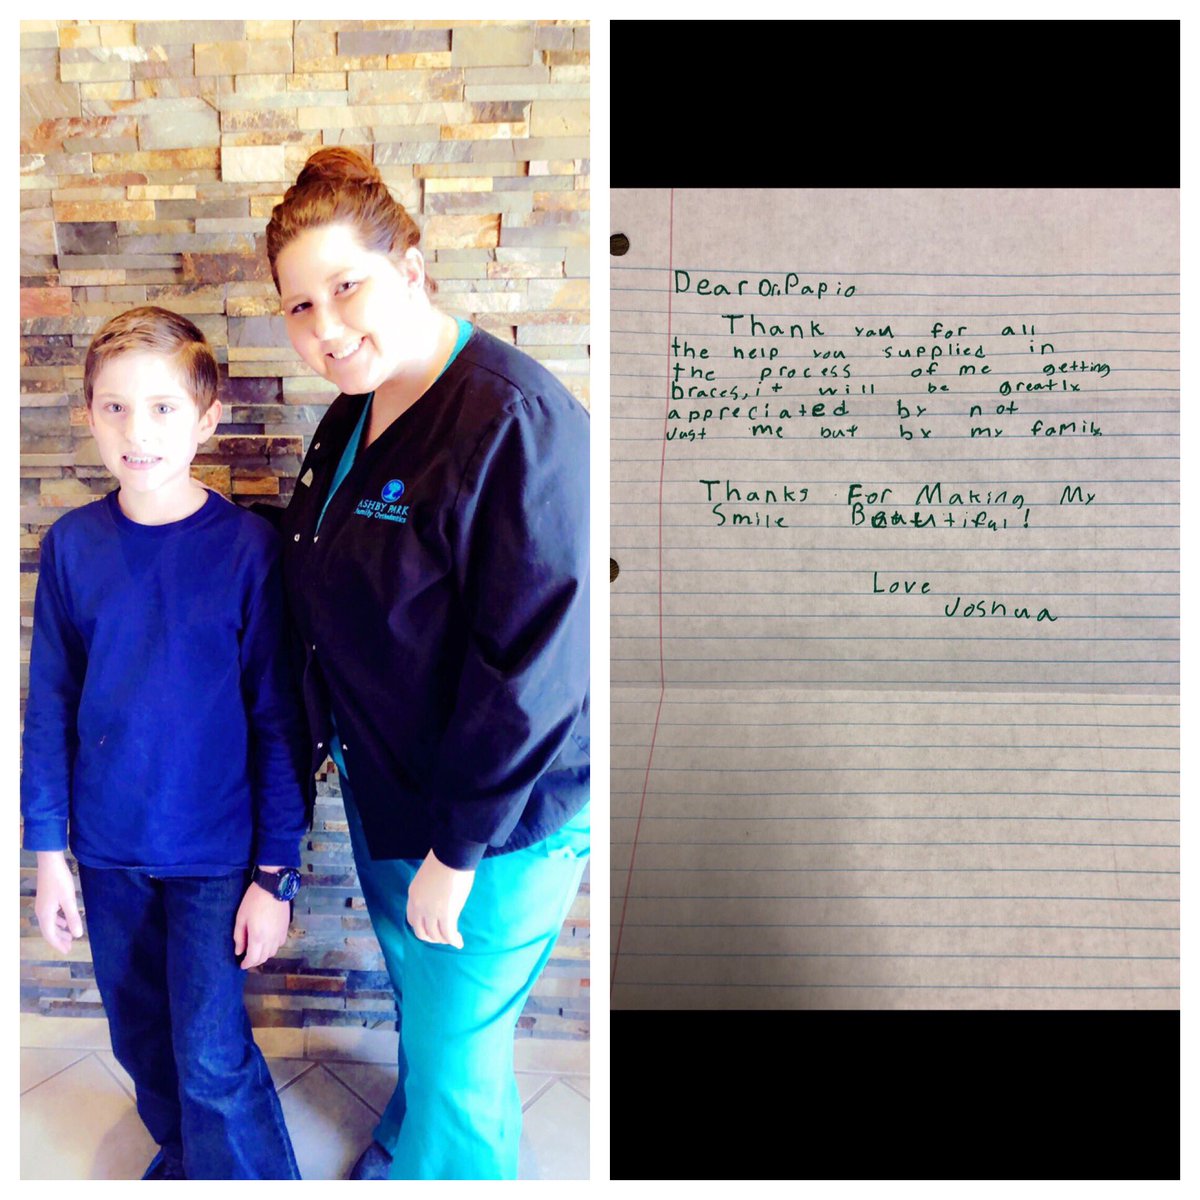 ASHBY PARK
Family Orthodontics
Dear Dr. Papio
Thank you for all
the help you supplied in
the process of me getting
braces, it will be greatly
appreciated by not
Just me but by my family
Thanks For Making My
Smile Beautiful!
Love
Joshua